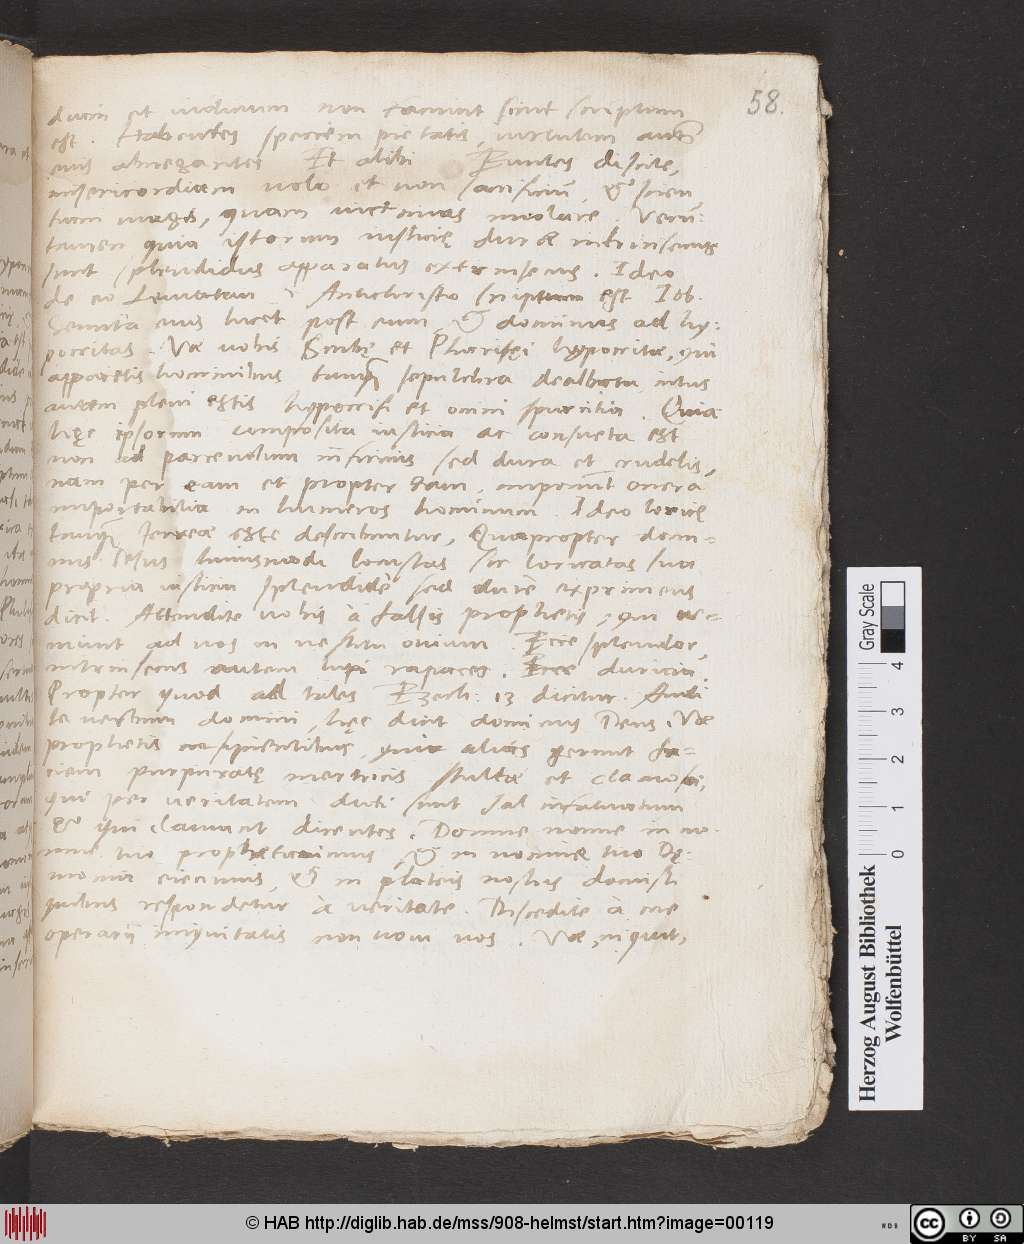 58.
et iudicium non faciunt sicut scriptum
est. Habentes speciem pietatis, virtutem aut̃
eius abnegantes Et alibi Euntes discite,
misericordiam volo et non sacrificiũ, & scien
tiam magis, quam victimas . Verũ-
tamen quia istorum iusticię durę intrinsecus
sunt splendidus apparatus extrinsecus. Ideo
de eo Antichristo scriptum est Iob.
Semita eius lucet post eum, & dominus ad hy-
pocritas. Væ vobis Scribę et Pharisęi hypocritæ, qui
apparetis hominibus tanq̃ sepulchra dealbata, intus
autem pleni estis hypocrisi et omni spurcitia. Quia
hęc ipsorum composita iusticia ac consueta est
non ad infirmis sed dura et crudelis,
nam per eam et propter eam, imponunt onera
importabilia in humeros hominum. Ideo loricę
tanq̃ ferreæ esse describuntur, Quapropter domi-
nus Iesus huiusmodi locustas sic loricatas sua
propria iusticia splendidè sed durè exprimens
dicit. Attendite vobis à falsis prophetis, qui ve-
niunt ad vos in vestitu ovium. Ecce splendor,
intrinsecus autem lupi rapaces. Ecce duricia.
Propter quod ad tales Ezech: 13 dicitur. Audi
te verbum domini, hęc dicit dominus Deus. Væ
prophetis insipientibus, quia alias gerunt fa-
ciem purpuratę meretricis stultæ et clamosæ,
qui per veritatem dicti sunt sal infatuatum
& qui clamant dicentes. Domine nonne in no-
mine tuo prophetavimus, & in nomine tuo Dę-
monia eiecimus, & in plateis nostris docuisti
quibus respondetur à veritate. Discedite à me
operarij iniquitatis non novi vos. Væ, inquit,
Gray Scale
0 1 2 3 4
Herzog August Bibliothek
Wolfenbüttel
© HAB http://diglib.hab.de/mss/908-helmst/start.htm?image=00119
WDB
cc BY SA